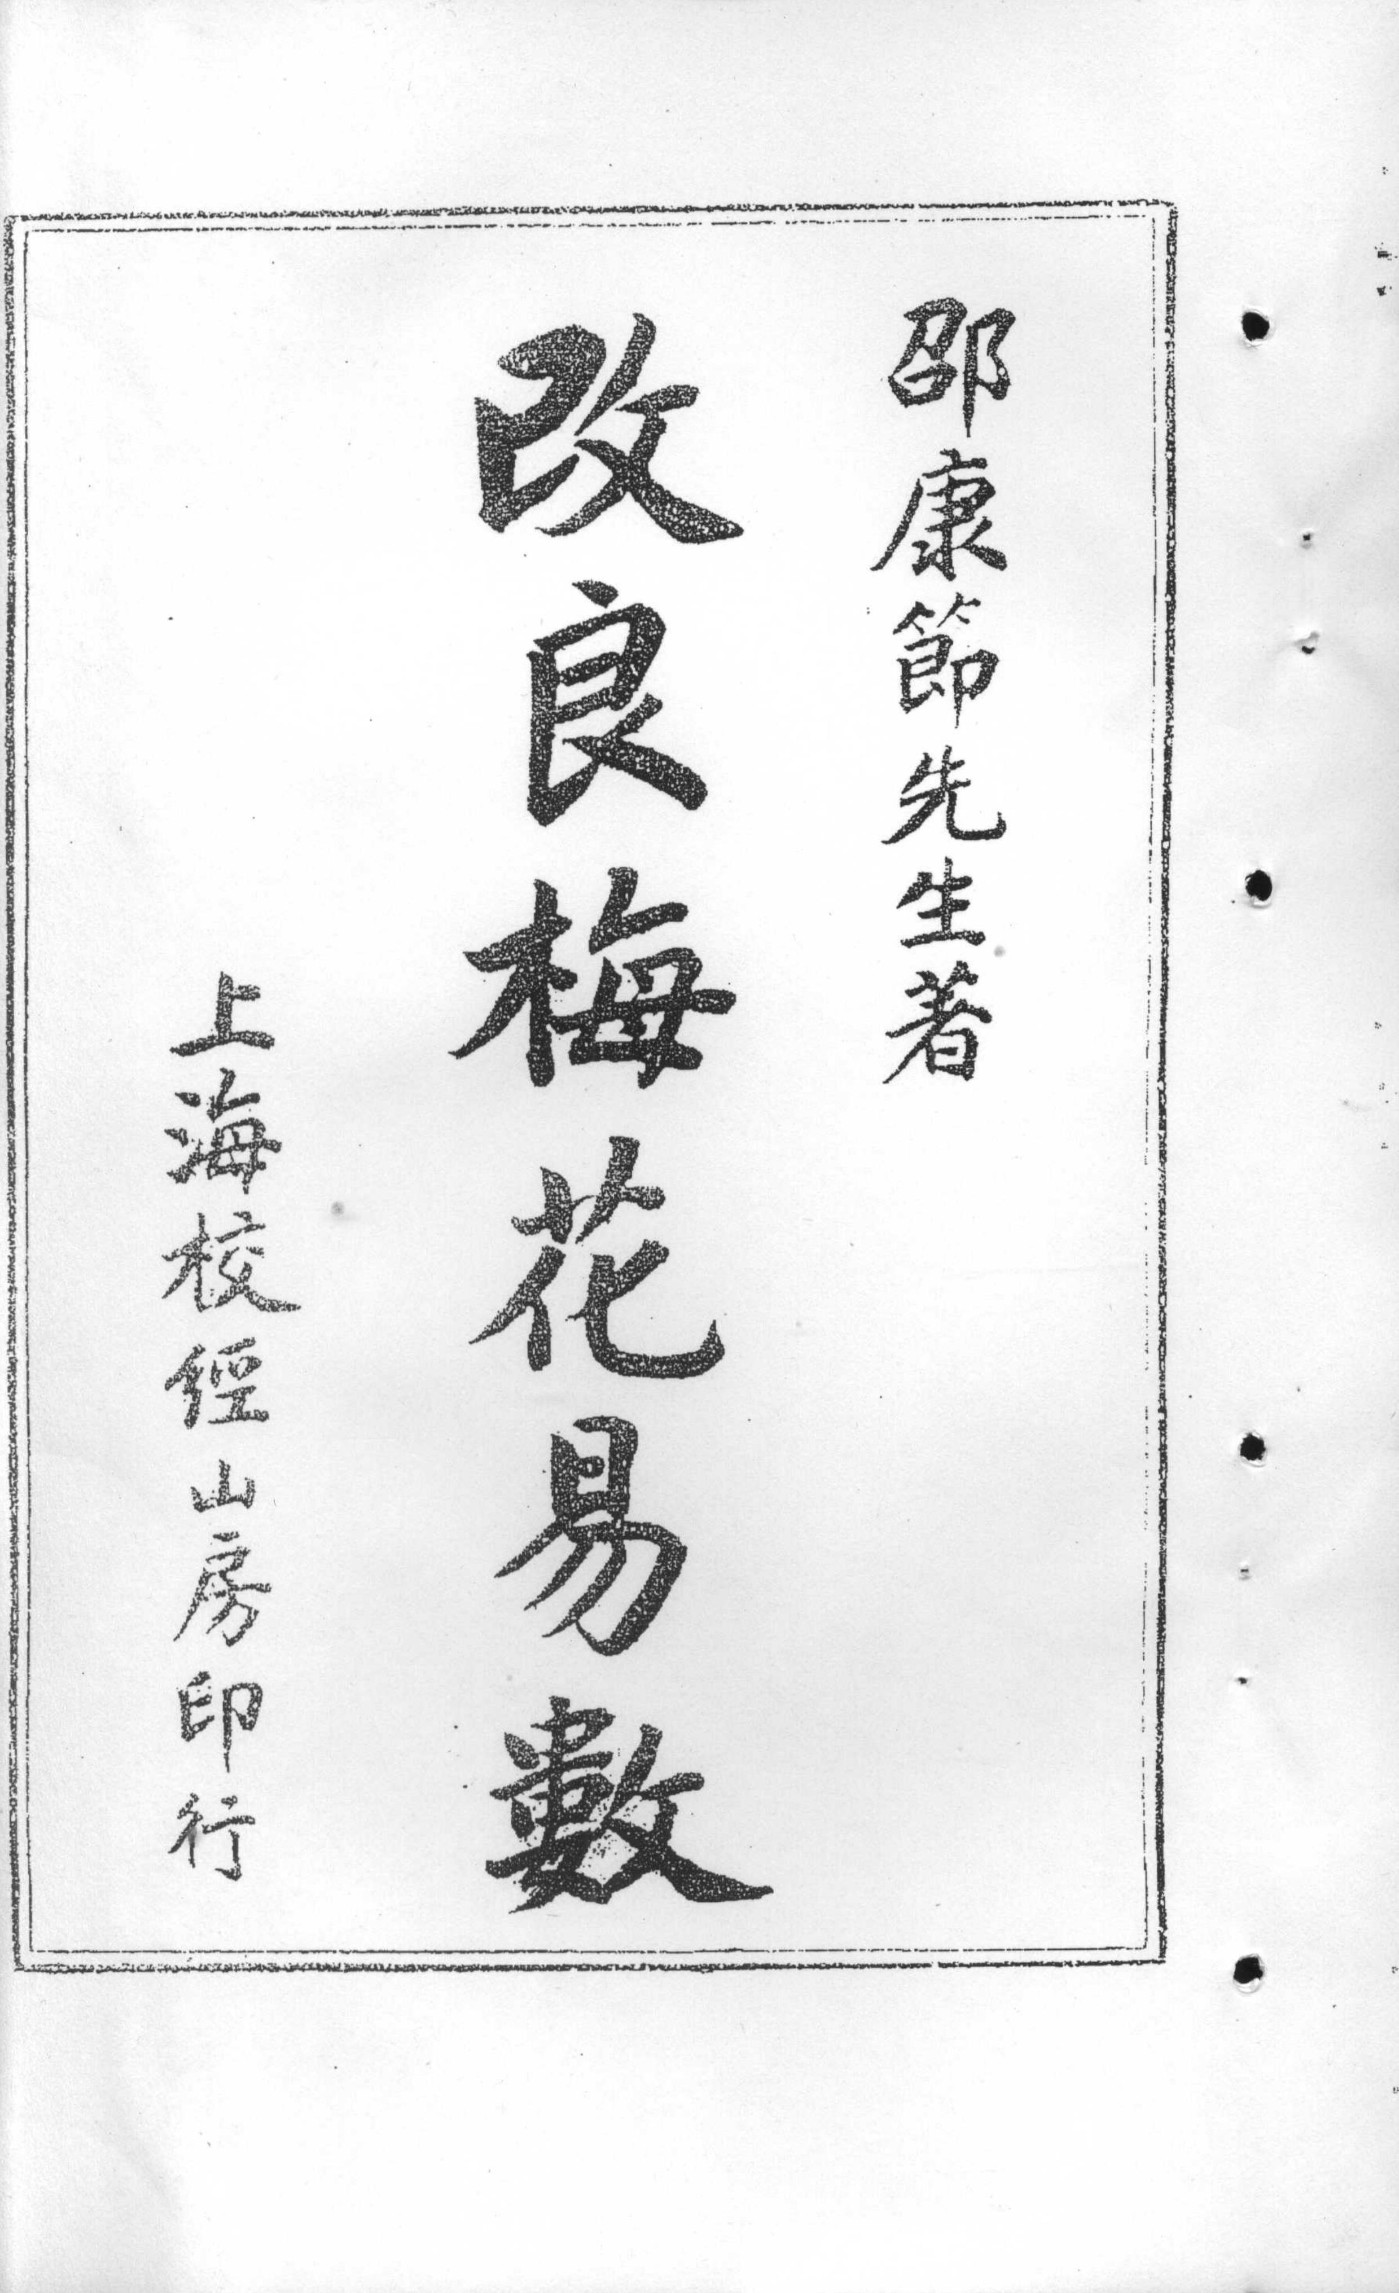 邵康節先生著
改良梅花易數
上海校經山房印行